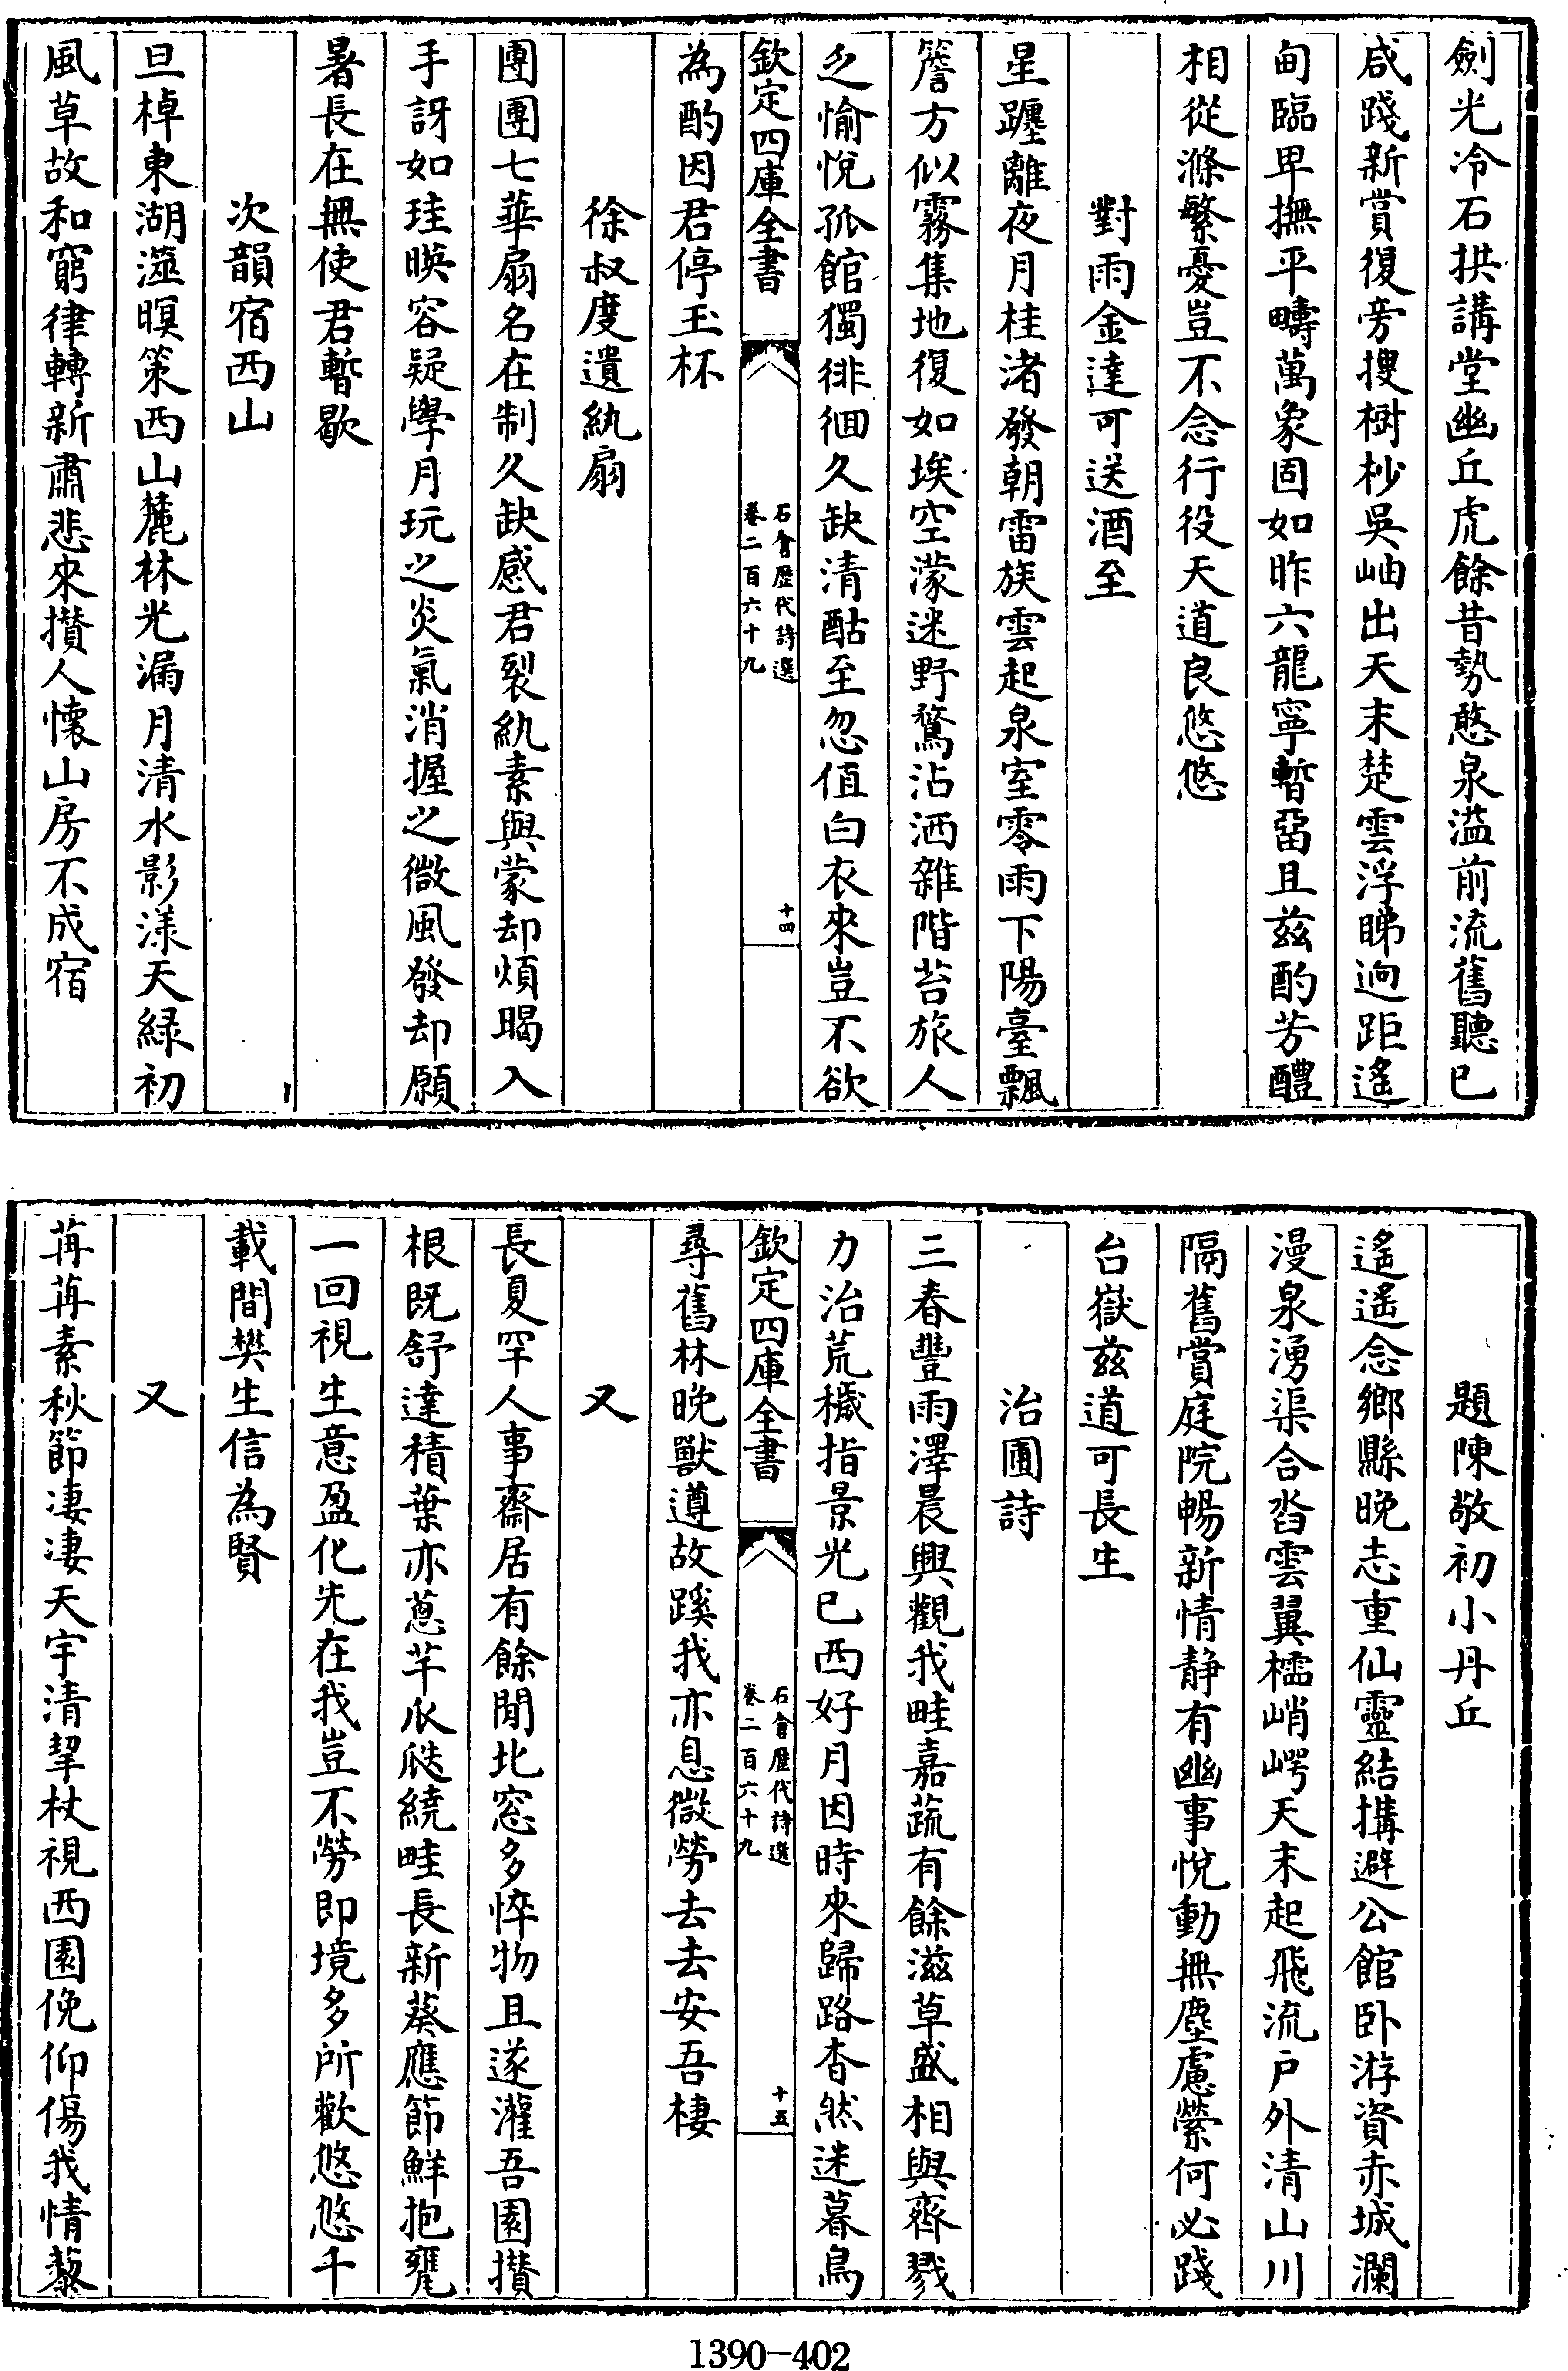 劍光冷石拱講堂幽丘虎餘昔勢憨泉溢前流舊聽已
咸踐新賞復旁搜樹杪吳岫出天末楚雲浮睇逈距遙
甸臨卑撫平疇萬象固如昨六龍寧暫畱且兹酌芳醴
相從滌繁憂豈不念行役天道良悠悠
對雨金達可送酒至
星躔離夜月桂渚發朝雷族雲起泉室零雨下陽臺飄
簷方似霧集地復如埃空濛迷野騖沾洒雜階苔旅人
乏愉悅孤館獨徘徊久缺清酤至忽值白衣來豈不欲
欽定四庫全書
石倉歷代詩選
卷二百六十九
十四
為酌因君停玉杯
徐叔度遺紈扇
團團七華扇名在制久缺感君裂紈素與蒙却煩暍入
手訝如珪暎容疑學月玩之炎氣消握之微風發却願
暑長在無使君暫歇
次韻宿西山
旦棹東湖澨暝策西山麓林光漏月清水影漾天緑初
風草故和窮律轉新肅悲來攅人懷山房不成宿
題陳敬初小丹丘
遙遙念鄉縣晚志重仙靈結搆避公館卧游資赤城瀾
漫泉湧渠合沓雲翼櫺峭崿天末起飛流户外清山川
隔舊賞庭院暢新情静有幽事悅動無塵慮縈何必踐
台嶽兹道可長生
治圃詩
三春豐雨澤晨興觀我畦嘉蔬有餘滋草盛相與齊戮
力治荒穢指景光已西好月因時來歸路杳然迷暮鳥
欽定四庫全書
石倉歷代詩選
卷二百六十九
十五
尋舊林晚獸遵故蹊我亦息微勞去去安吾棲
又
長夏罕人事齋居有餘閒北窓多悴物且遂灌吾園攅
根既舒達積葉亦蔥芊瓜瓞繞畦長新葵應節鮮抱甕
一回視生意盈化先在我豈不勞即境多所歡悠悠千
載間樊生信為賢
又
苒苒素秋節凄凄天宇清挈杖視西園俛仰傷我情藜
1390-402